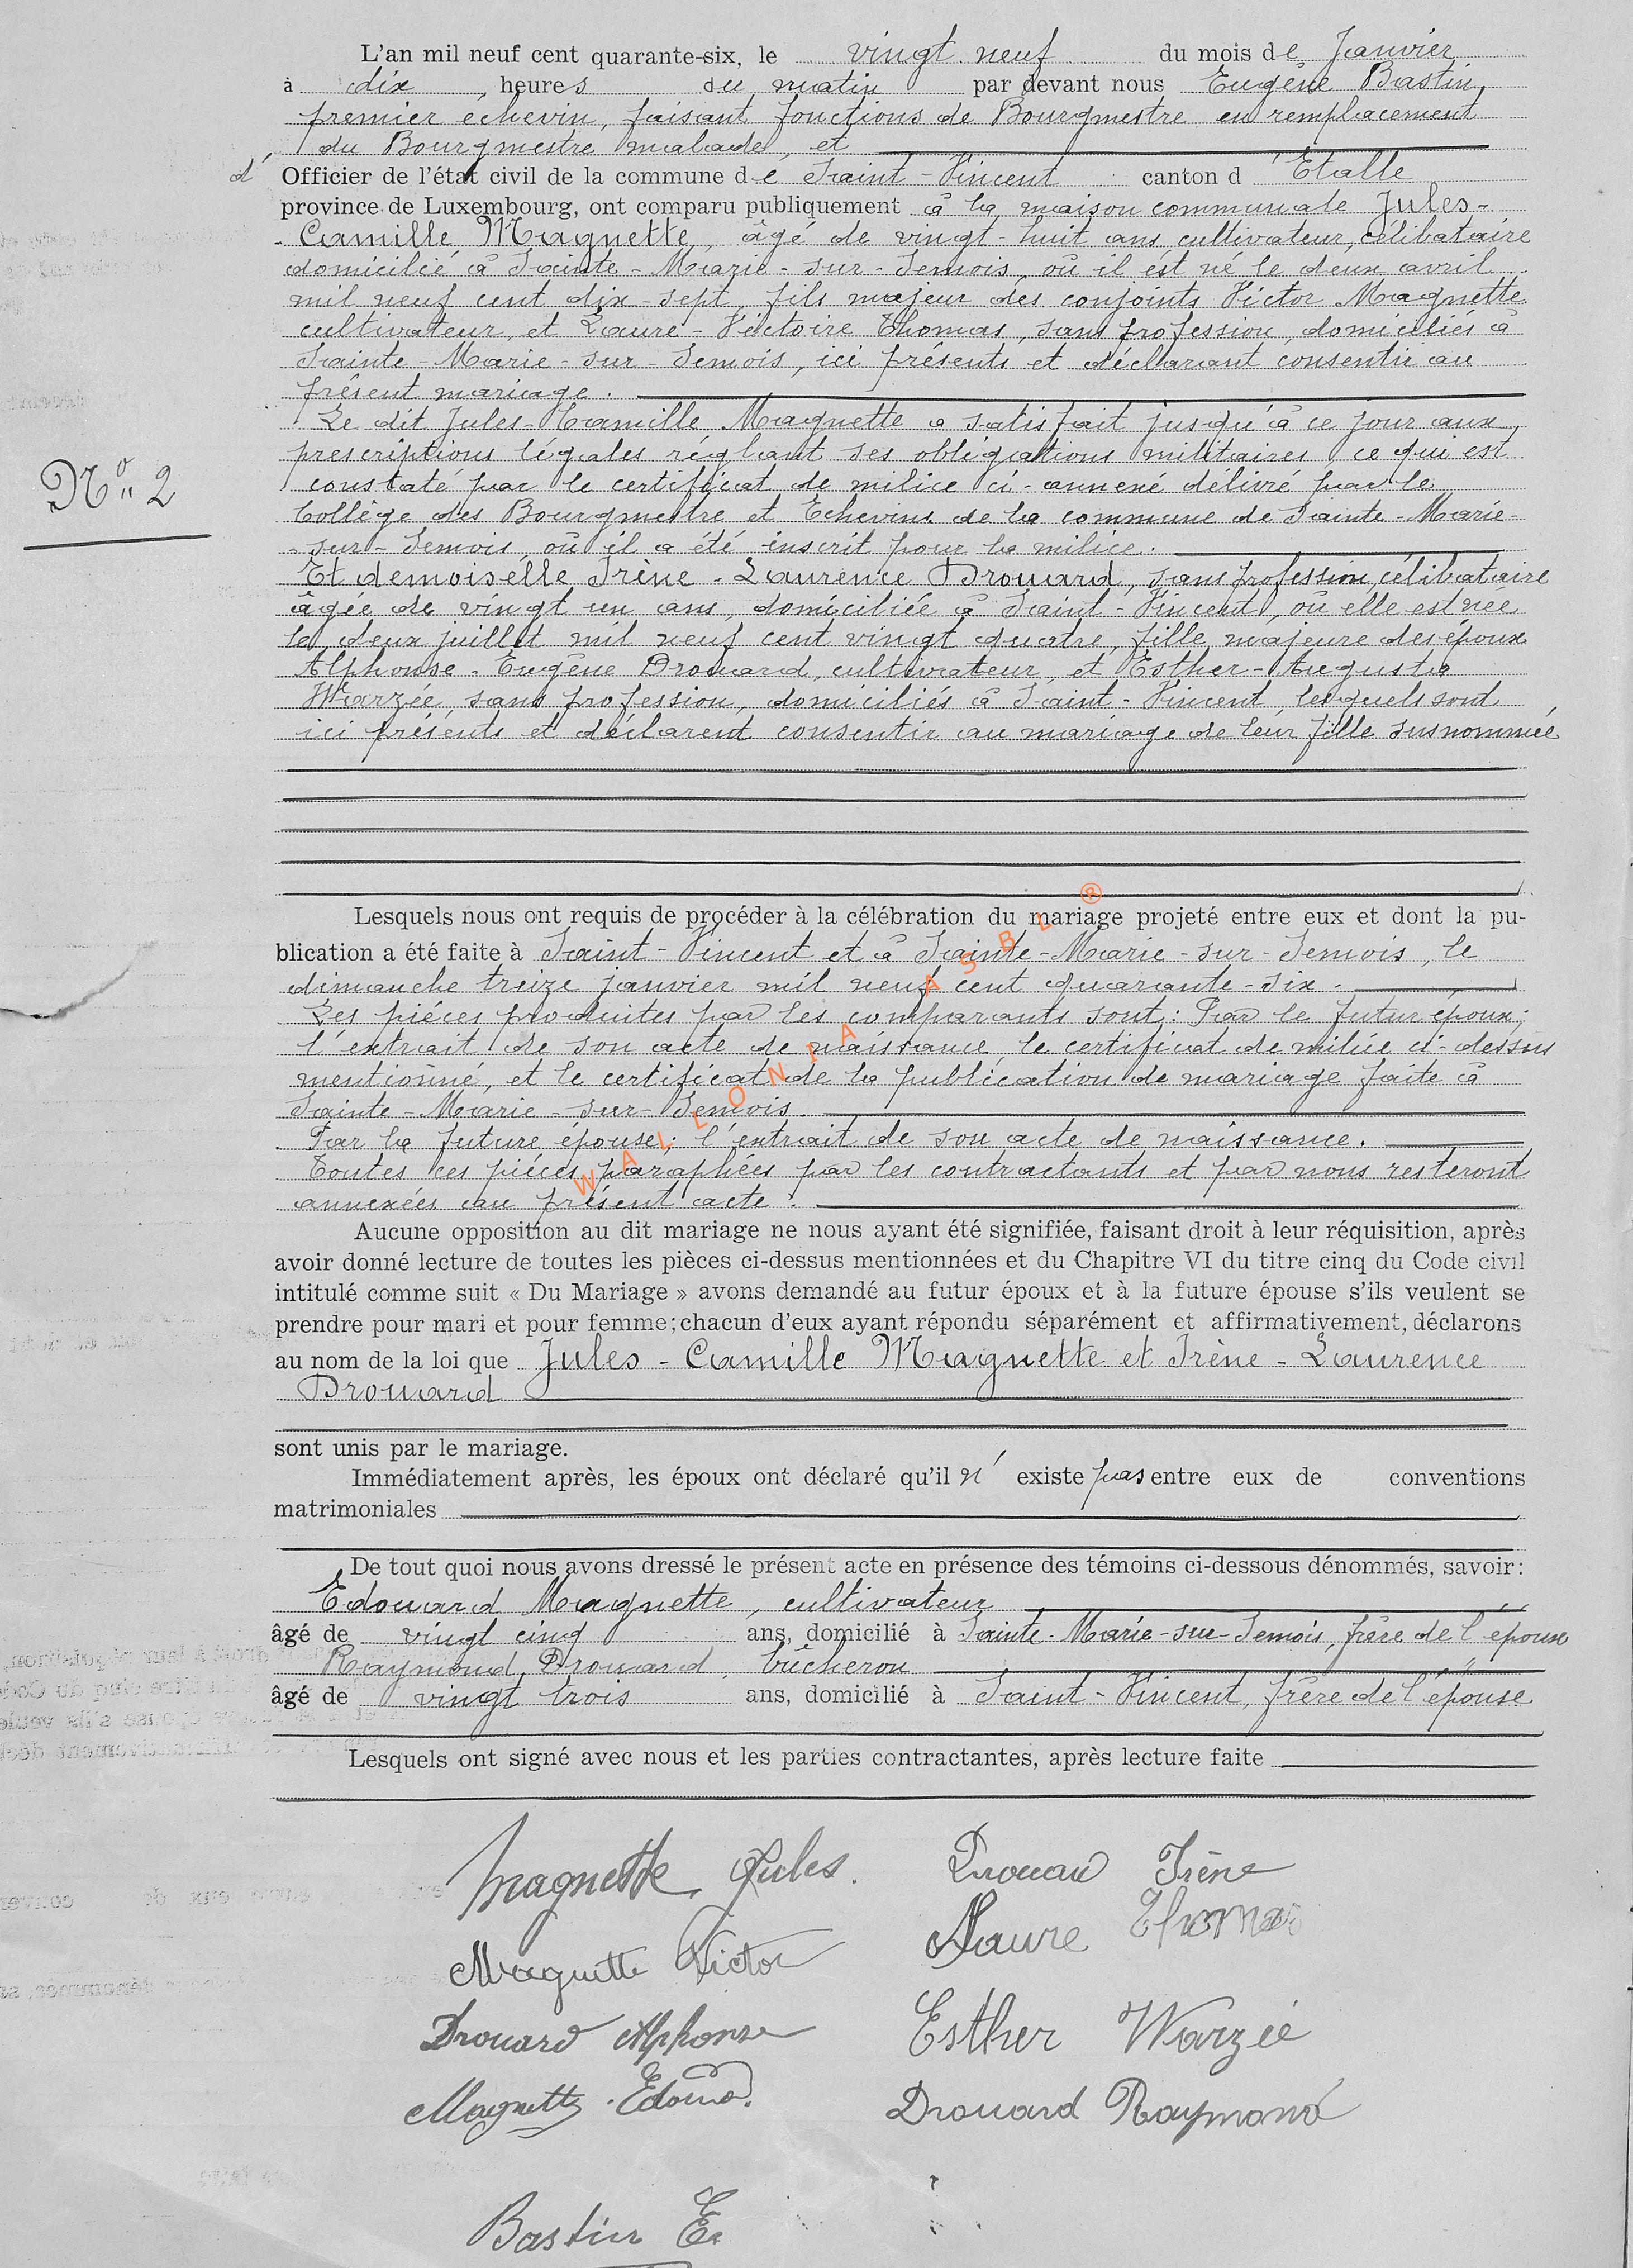 L'an mil neuf cent quarante-six, le vingt neuf du mois de Janvier
à dix, heures du matin par devant nous Eugène Bastin,
premier échevin, faisant fonctions de Bourgmestre en remplacement
du Bourgmestre malade, et
d' Officier de l'état civil de la commune de Saint-Vincent canton d'Etalle
province de Luxembourg, ont comparu publiquement à la maison communale Jules-
-Camille Magnette, âgé de vingt-huit ans cultivateur, célibataire
domicilié à Sainte-Marie-sur-Semois, où il est né le deux avril
mil neuf cent dix-sept, fils majeur des conjoints Victor Magnette
cultivateur, et Laure-Victoire Thomas, sans profession, domiciliés à
Sainte-Marie-sur-Semois, ici présents et déclarant consentir au
présent mariage.
Le dit Jules-Camille Magnette a satisfait jusqu'à ce jour aux
prescriptions légales réglant ses obligations militaires ce qui est
constaté par le certificat de milice ci-annexé délivré par le
Collège des Bourgmestre et Echevins de la commune de Sainte-Marie-
-sur-Semois où il a été inscrit pour la milice.
N° 2
Et demoiselle Irène-Laurence Drouard, sans profession, célibataire
âgée de vingt un ans, domiciliée à Saint-Vincent, où elle est née
le deux juillet mil neuf cent vingt quatre, fille majeure des époux
Alphonse-Eugène Drouard, cultivateur, et Esther-Augusta
Warzée, sans profession, domiciliés à Saint-Vincent, lesquels sont
ici présents et déclarent consentir au mariage de leur fille susnommée
Lesquels nous ont requis de procéder à la célébration du mariage projeté entre eux et dont la pu-
blication a été faite à Saint-Vincent et à Sainte-Marie-sur-Semois, le
dimanche treize janvier mil neuf cent quarante-six.
Les pièces produites par les comparants sont: Par le futur époux;
l'extrait de son acte de naissance, le certificat de milice ci-dessus
mentionné, et le certificat de la publication de mariage faite à
Sainte-Marie-sur-Semois.
Par la future épouse: l'extrait de son acte de naissance.
Toutes ces pièces paraphées par les contractants et par nous resteront
annexées au présent acte.
WALLONIA ASBL ®
Aucune opposition au dit mariage ne nous ayant été signifiée, faisant droit à leur réquisition, après
avoir donné lecture de toutes les pièces ci-dessus mentionnées et du Chapitre VI du titre cinq du Code civil
intitulé comme suit « Du Mariage » avons demandé au futur époux et à la future épouse s'ils veulent se
prendre pour mari et pour femme; chacun d'eux ayant répondu séparément et affirmativement, déclarons
au nom de la loi que Jules-Camille Magnette et Irène-Laurence
Drouard
sont unis par le mariage.
Immédiatement après, les époux ont déclaré qu'il n' existe pas entre eux de conventions
matrimoniales
De tout quoi nous avons dressé le présent acte en présence des témoins ci-dessous dénommés, savoir:
Edouard Magnette, cultivateur
âgé de vingt cinq ans, domicilié à Sainte-Marie-sur-Semois, frère de l'époux
Raymond Drouard, bûcheron
âgé de vingt trois ans, domicilié à Saint-Vincent, frère de l'épouse
Lesquels ont signé avec nous et les parties contractantes, après lecture faite
Magnette Jules. Drouard Irène
Magnette Victor Laure Thomas
Drouard Alphonse Esther Warzée
Magnette Edouard. Drouard Raymond
Bastin E.